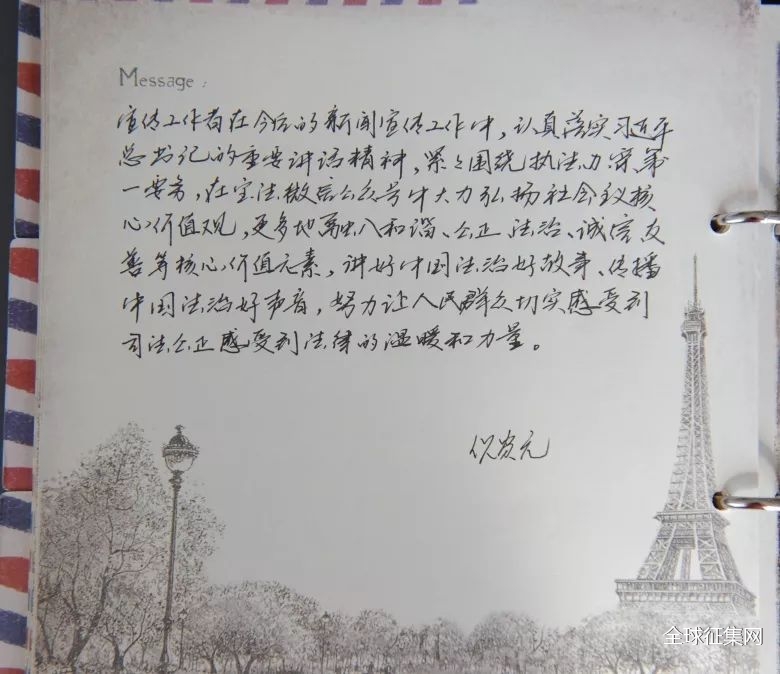 Message:
宣传工作者在今后的新闻宣传工作中，认真落实习近平
总书记的重要讲话精神，紧紧围绕执法办案第
一要务，在宝法微信公众号中大力弘扬社会主义核
心价值观，更多地融入和谐、公正、法治、诚信、友
善等核心价值元素，讲好中国法治好故事、传播
中国法治好声音，努力让人民群众切实感受到
司法公正感受到法律的温暖和力量。
全球征集网